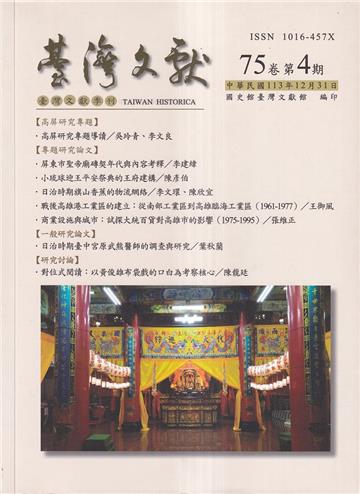 ISSN 1016-457X
臺灣文獻
75卷第4期
臺灣文獻季刊 TAIWAN HISTORICA
中華民國113年12月31日
國史館臺灣文獻館 編印
【高屏研究專題】
・高屏研究專題導讀／吳玲青、李文良
【專題研究論文】
・屏東市聖帝廟磚契年代與內容考釋／李建緯
・小琉球迎王平安祭典的王府建構／陳彥伯
・日治時期旗山香蕉的物流網絡／李文環、陳欣宜
・戰後高雄港工業區的建立：從南部工業區到高雄臨海工業區（1961-1977）／王御風
・商業設施與城市：試探大統百貨對高雄市的影響（1975-1995）／張維正
【一般研究論文】
・日治時期臺中宮原武熊醫師的調查與研究／葉秋蘭
【研究討論】
・對位式閱讀：以黃俊雄布袋戲的口白為考察核心／陳龍廷
代天巡行